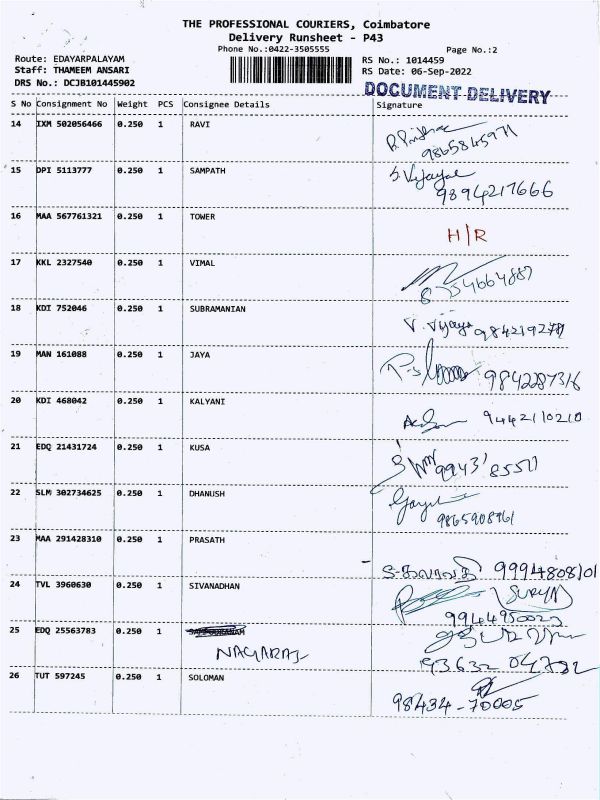 THE PROFESSIONAL COURIERS, Coimbatore
Delivery Runsheet - P43
Phone No.:0422-3505555
Page No.:2
Route: EDAYARPALAYAM
Staff: THAMEEM ANSARI
DRS No.: DCJB101445902
RS No.: 1014459
RS Date: 06-Sep-2022
DOCUMENT DELIVERY
S No Consignment No Weight PCS Consignee Details Signature
14 IXM 502056466 0.250 1 RAVI
9865845971
15 DPI 5113777 0.250 1 SAMPATH
S. Vijayal
9894217666
16 MAA 567761321 0.250 1 TOWER
H/R
17 KKL 2327540 0.250 1 VIMAL
18 KDI 752046 0.250 1 SUBRAMANIAN
V. Vijaya
19 MAN 161088 0.250 1 JAYA
9842287316
20 KDI 468042 0.250 1 KALYANI
9442110210
21 EDQ 21431724 0.250 1 KUSA
22 SLM 302734625 0.250 1 DHANUSH
9865908961
23 MAA 291428310 0.250 1 PRASATH
9994808101
24 TVL 3960630 0.250 1 SIVANADHAN
SURYA
25 EDQ 25563783 0.250 1
NAGARAJ
93632 04782
26 TUT 597245 0.250 1 SOLOMAN
98434-70005